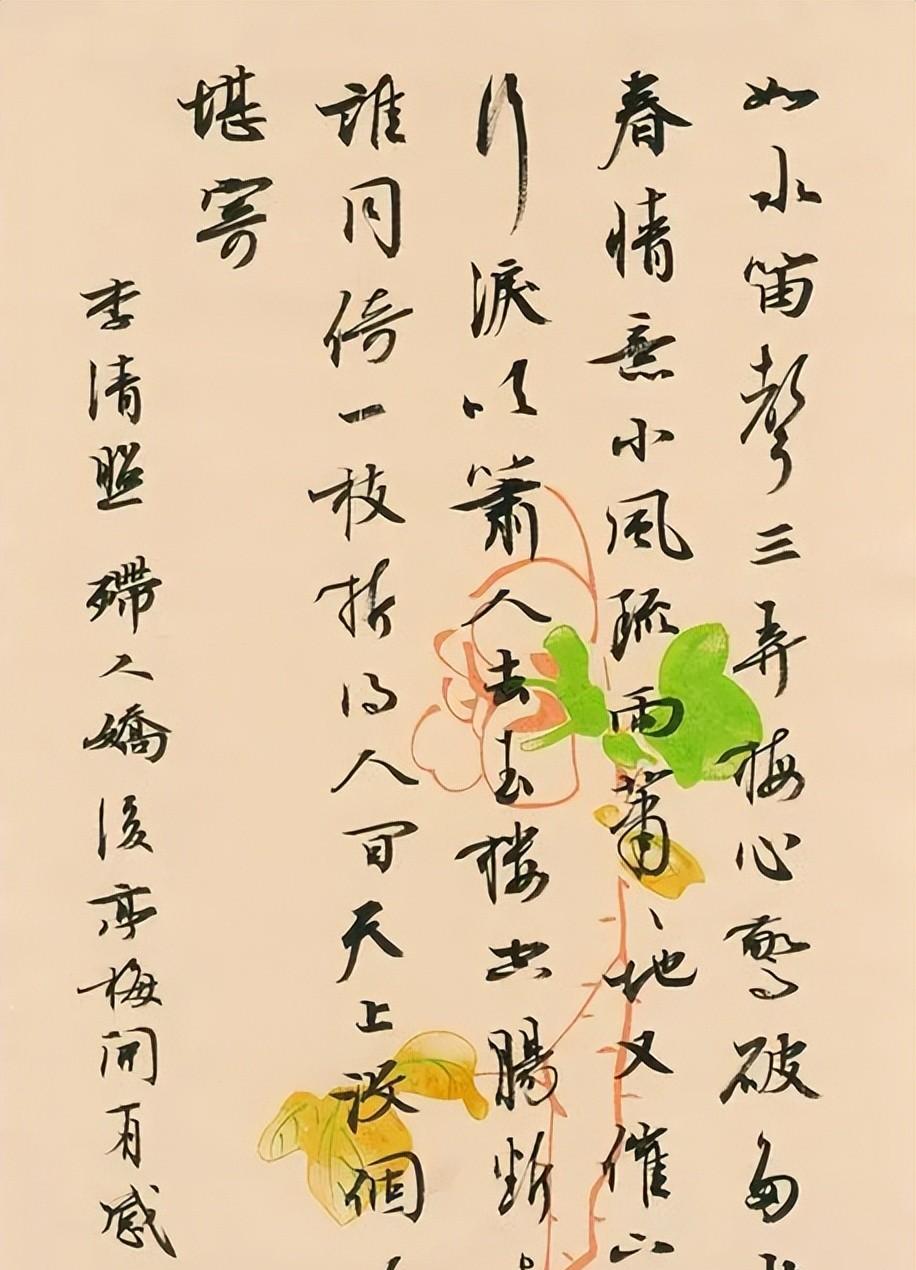 如水笛聲三弄梅心驚破多
春情意小風疏雨蕭、地又催下
行淚吹簫人去玉樓空腸斷
誰同倚一枝折得人間天上沒個
堪寄
李清照 殢人嬌 後亭梅開有感